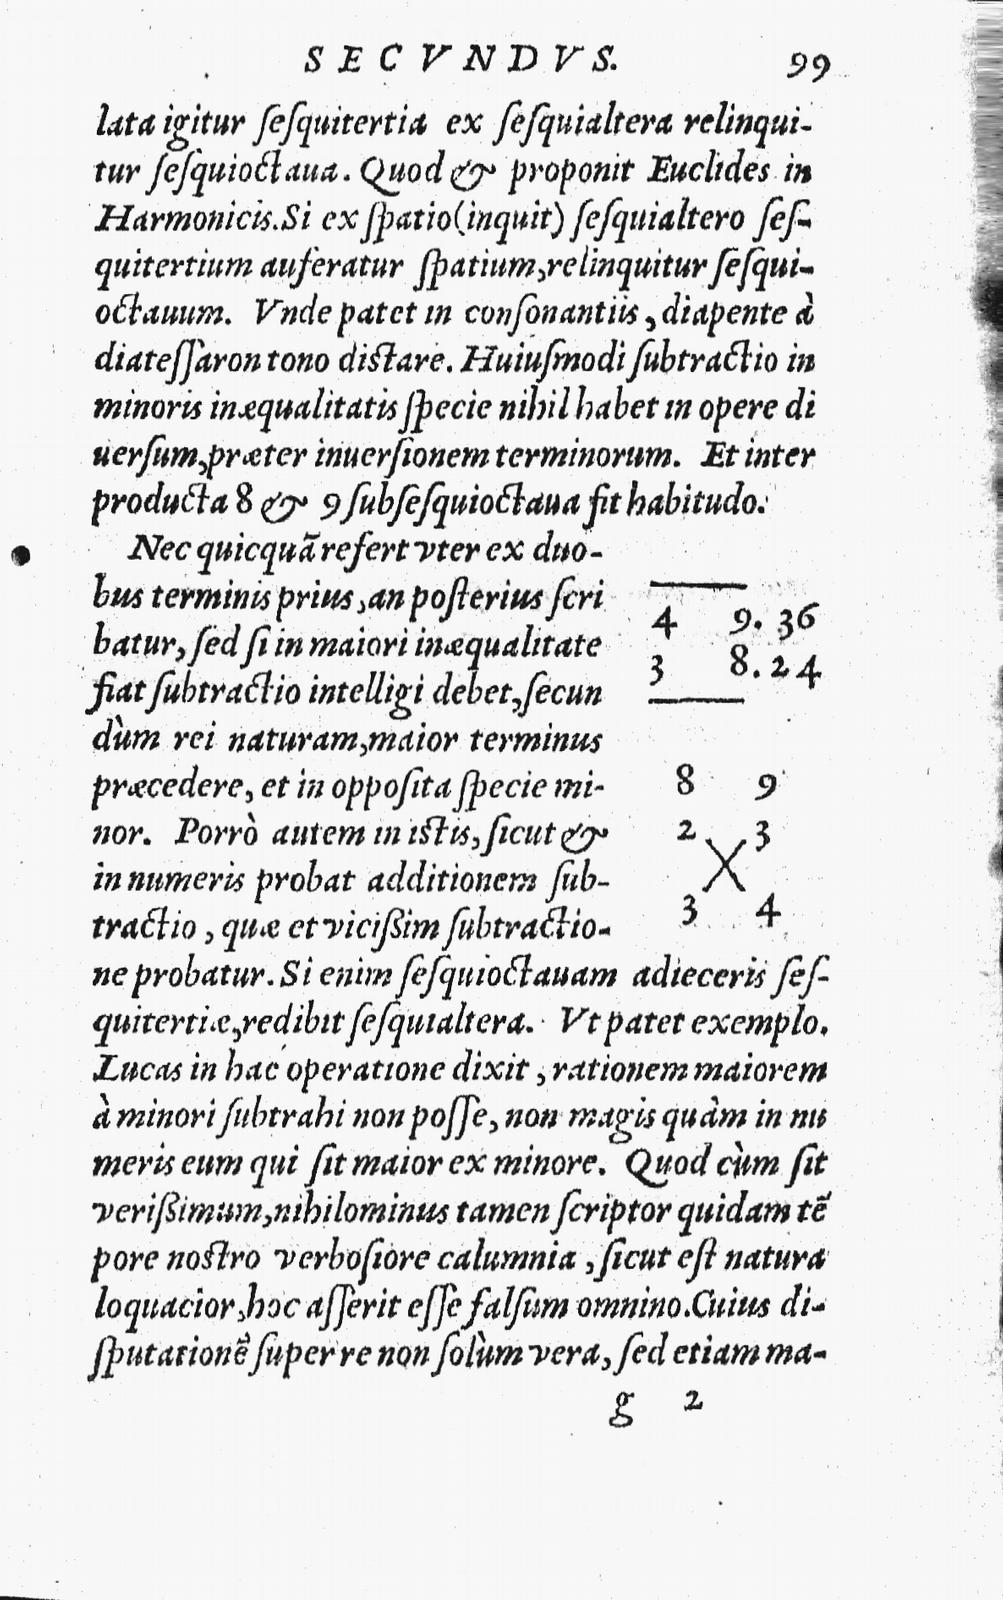 SECVNDVS. 99
lata igitur ſeſquitertia ex ſeſquialtera relinqui-
tur ſeſquioctaua. Quod & proponit Euclides in
Harmonicis. Si ex ſpatio (inquit) ſeſquialtero ſeſ-
quitertium auferatur ſpatium, relinquitur ſeſqui-
octauum. Vnde patet in conſonantiis, diapente à
diateſſaron tono diſtare. Huiuſmodi ſubtractio in
minoris inæqualitatis ſpecie nihil habet in opere di
uerſum, præter inuerſionem terminorum. Et inter
producta 8 & 9 ſubſeſquioctaua fit habitudo.
Nec quicquã refert vter ex duo-
bus terminis prius, an poſterius ſcri
batur, ſed ſi in maiori inæqualitate
fiat ſubtractio intelligi debet, ſecun
dùm rei naturam, maior terminus
præcedere, et in oppoſita ſpecie mi-
nor. Porrò autem in iſtis, ſicut &
in numeris probat additionem ſub-
tractio, quæ et viciſsim ſubtractio-
4 9. 36
3 8. 24
8 9
2 3
3 4
ne probatur. Si enim ſeſquioctauam adieceris ſeſ-
quitertiæ, redibit ſeſquialtera. Vt patet exemplo.
Lucas in hac operatione dixit, rationem maiorem
à minori ſubtrahi non poſſe, non magis quàm in nu
meris eum qui ſit maior ex minore. Quod cùm ſit
veriſsimum, nihilominus tamen ſcriptor quidam tẽ
pore noſtro verboſiore calumnia, ſicut eſt natura
loquacior, hoc aſſerit eſſe falſum omnino. Cuius di-
ſputationẽ ſuper re non ſolùm vera, ſed etiam ma-
g 2